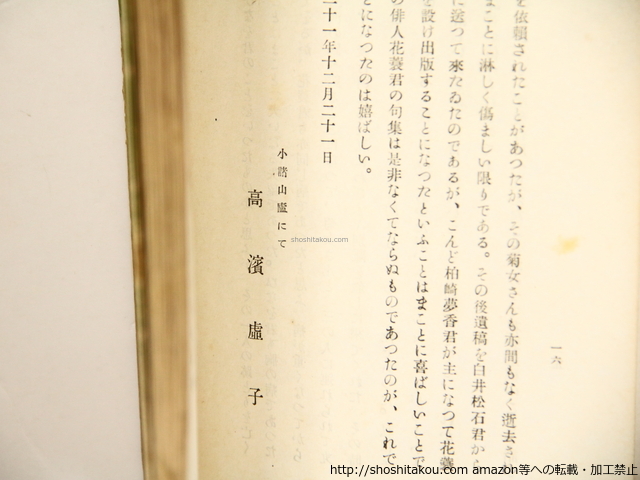 を依頼されたことがあつたが、その菊女さんも亦間もなく逝去さ
まことに淋しく傷ましい限りである。その後遺稿を白井松石君から
に送つて來たゐたのであるが、こんど柏崎夢香君が主になつて花蓑
を設け出版することになつたといふことはまことに喜ばしいことで
の俳人花蓑君の句集は是非なくてならぬものであつたのが、これで
とになつたのは嬉ばしい。
二十一年十二月二十一日
小諸山廬にて
高濱虛子
一六
shoshitakou.com
http://shoshitakou.com amazon等への転載・加工禁止